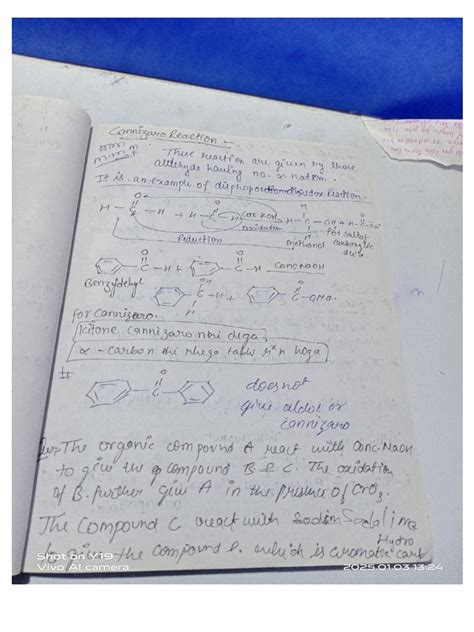 Cannizaro Reaction :-
These reaction are given by those
aldehyde having no - α Hatom.
It is an example of
H - C - H + H - C - H conc KOH H - C - OH + H - C - OK
oxidation
Reduction
methanol
Pot salt of
carboxylic
acid
C - H + C - H Conc NaOH
Benzyldehyd
C - H + C - ONa
for Cannizaro.
kitone cannizaro nhi dega.
α - Carbon nhi rhega tabhi rxn hoga
does not
give aldol or
cannizaro
Que: The organic compound A react with Conc. NaOH
to give the compound B & C. The oxidation
of B. further give A in the presence of CrO3.
The Compound C react with Sodalime
the compound which is aromatic Hydro carb
Shot on Y19
Vivo AI camera
2025.01.03 13:24